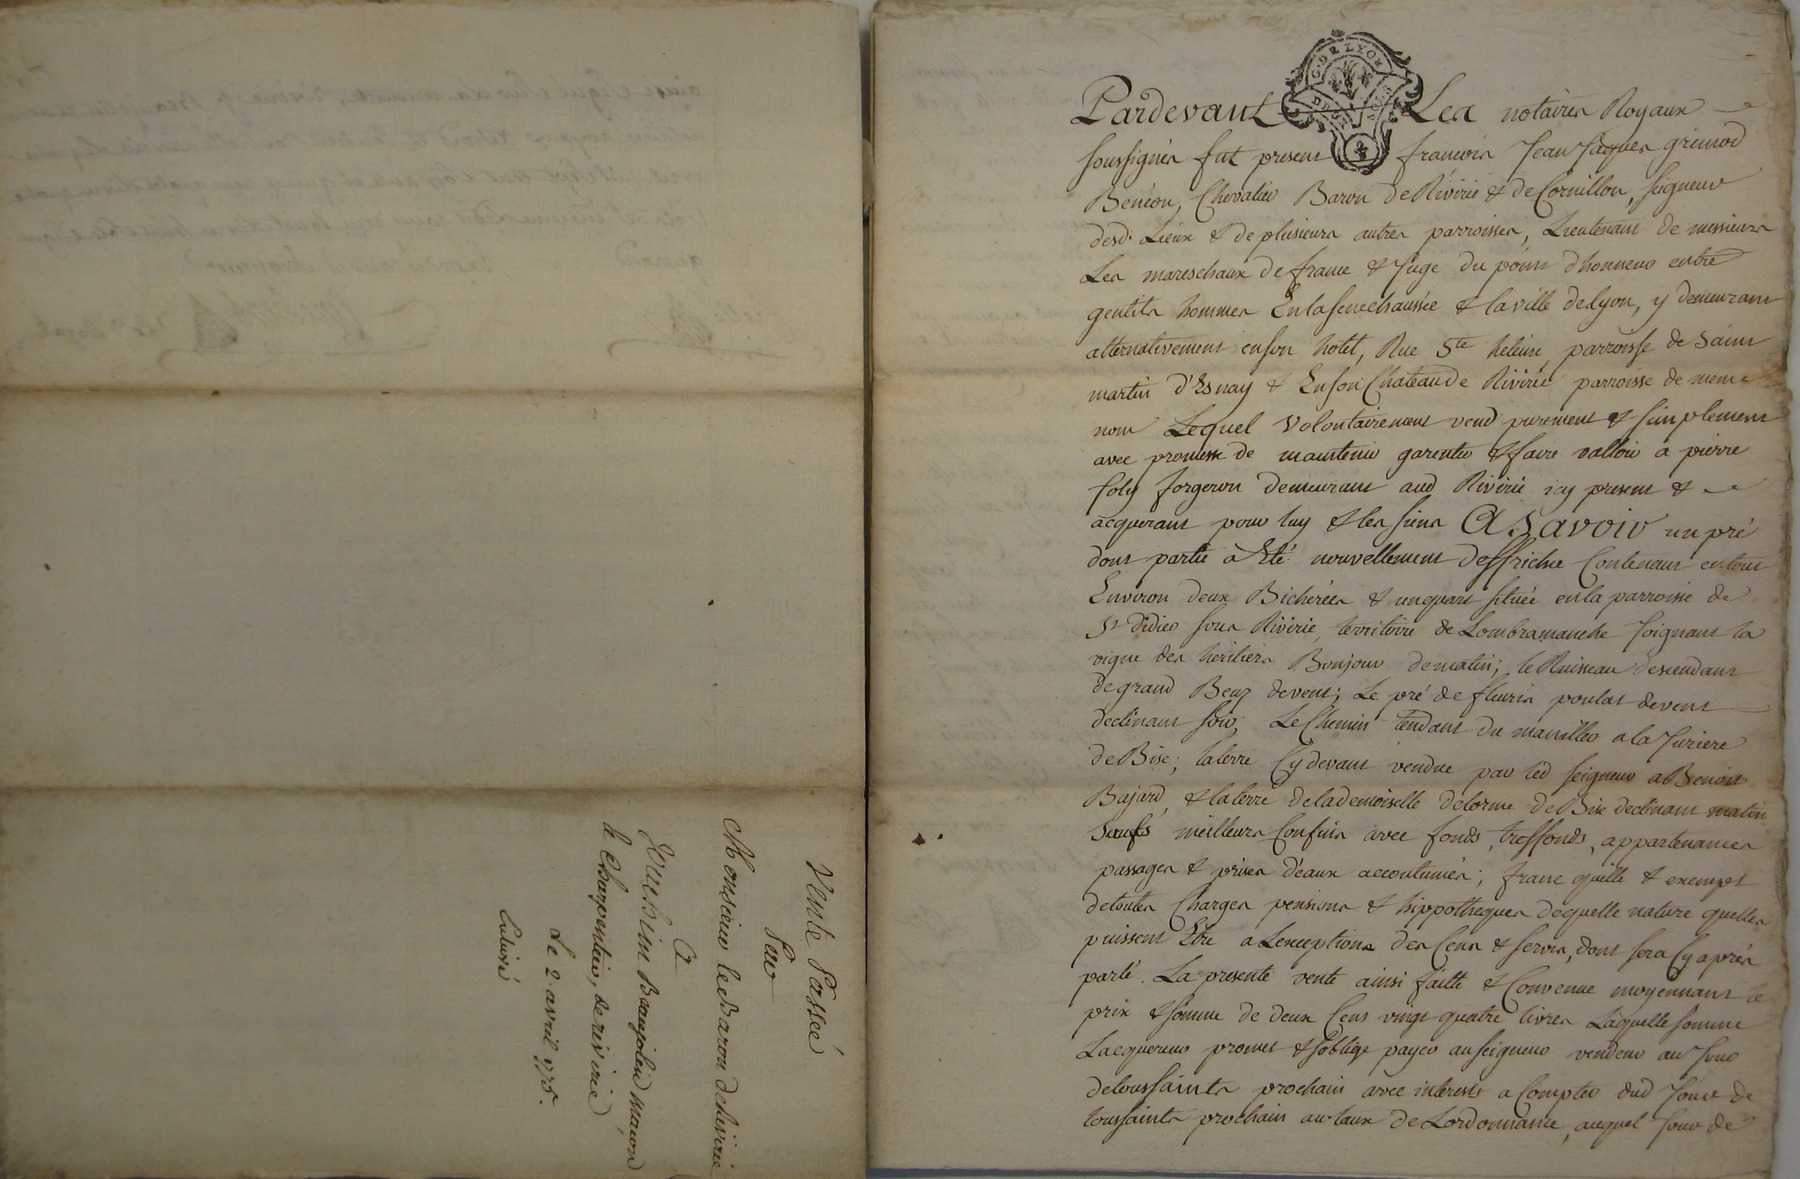 Vente Passée
Par
Monsieur le Baron de Rivirie
A
Beaujolin maçon
& Charpentier, de rivirie
Le 2. avril 1775.
G. DE LYON
Pardevant Les notaires Royaux
soussignés fut present francois Jean Jacques grimod
Benéon, Chevalier Baron de Rivirie & de Cornillon, seigneur
desd. Lieux & de plusieurs autres parroisses, Lieutenant de messieurs
Les mareschaux de france & Juge du point d'honneur entre
gentils hommes En la senechaussée & la ville de lyon, y demeurant
alternativement en son hotel, Rue Ste heleine parroisse de saint
martin d'Esnay & En son Chateau de Rivirie parroisse de meme
nom Lequel volontairement vend purement & simplement
avec promesse de maintenir garentir & faire valloir a pierre
foly forgeron demeurant aud Rivirie icy present &
acquerant pour luy & les siens A Savoir un pré
dont partie a Eté nouvellement deffriché Contenant en tout
Environ deux Bicherées & un quart situé en la parroisse de
St didier sous Rivirie, territoire de Lombramanche Joignant la
vigne des heritiers Bonjour de matin; le Ruisseau descendant
de grand Beuz de vent; Le pré de fleuris poulat de vent
declinant soir; Le Chemin tendant du manillier a la Juriere
de Bise; la terre Cy devant vendue par led seigneur a Benoit
Bajard, & la terre de la demoiselle delorme de Bise declinant matin
Saufs meilleurs Confins avec fonds, treffonds, appartenances
passages & prises d'eaux accoutumés; franc quitte & exempt
de toutes Charges pensions & hippotheques de quelle nature quelles
puissent Etre a Lexception des Cens & servis, dont sera Cy après
parlé. La presente vente ainsi faitte & Convenue moyennant le
prix & somme de deux Cens vingt quatre livres Laquelle somme
Lacquereur promet & soblige payer au seigneur vendeur au Jour
de toussaints prochain avec interests a Compter dud Jour de
toussaints prochain au taux de Lordonnance, auquel Jour de